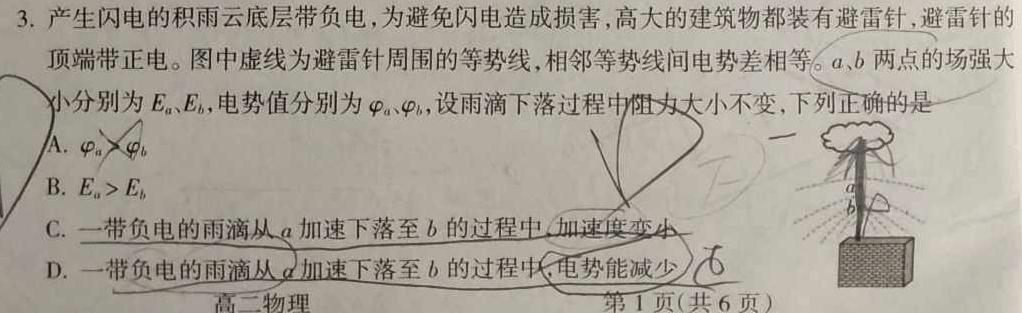 3. 产生闪电的积雨云底层带负电,为避免闪电造成损害,高大的建筑物都装有避雷针,避雷针的
顶端带正电。图中虚线为避雷针周围的等势线,相邻等势线间电势差相等。a、b 两点的场强大
小分别为 Eₐ、E_b,电势值分别为 φₐ、φ_b,设雨滴下落过程中阻力大小不变,下列正确的是
A. φₐ>φ_b
B. Eₐ> E_b
C. 一带负电的雨滴从 a 加速下落至 b 的过程中,加速度变小
D. 一带负电的雨滴从 a 加速下落至 b 的过程中,电势能减少
a
b
高二物理 第 1 页(共 6 页)